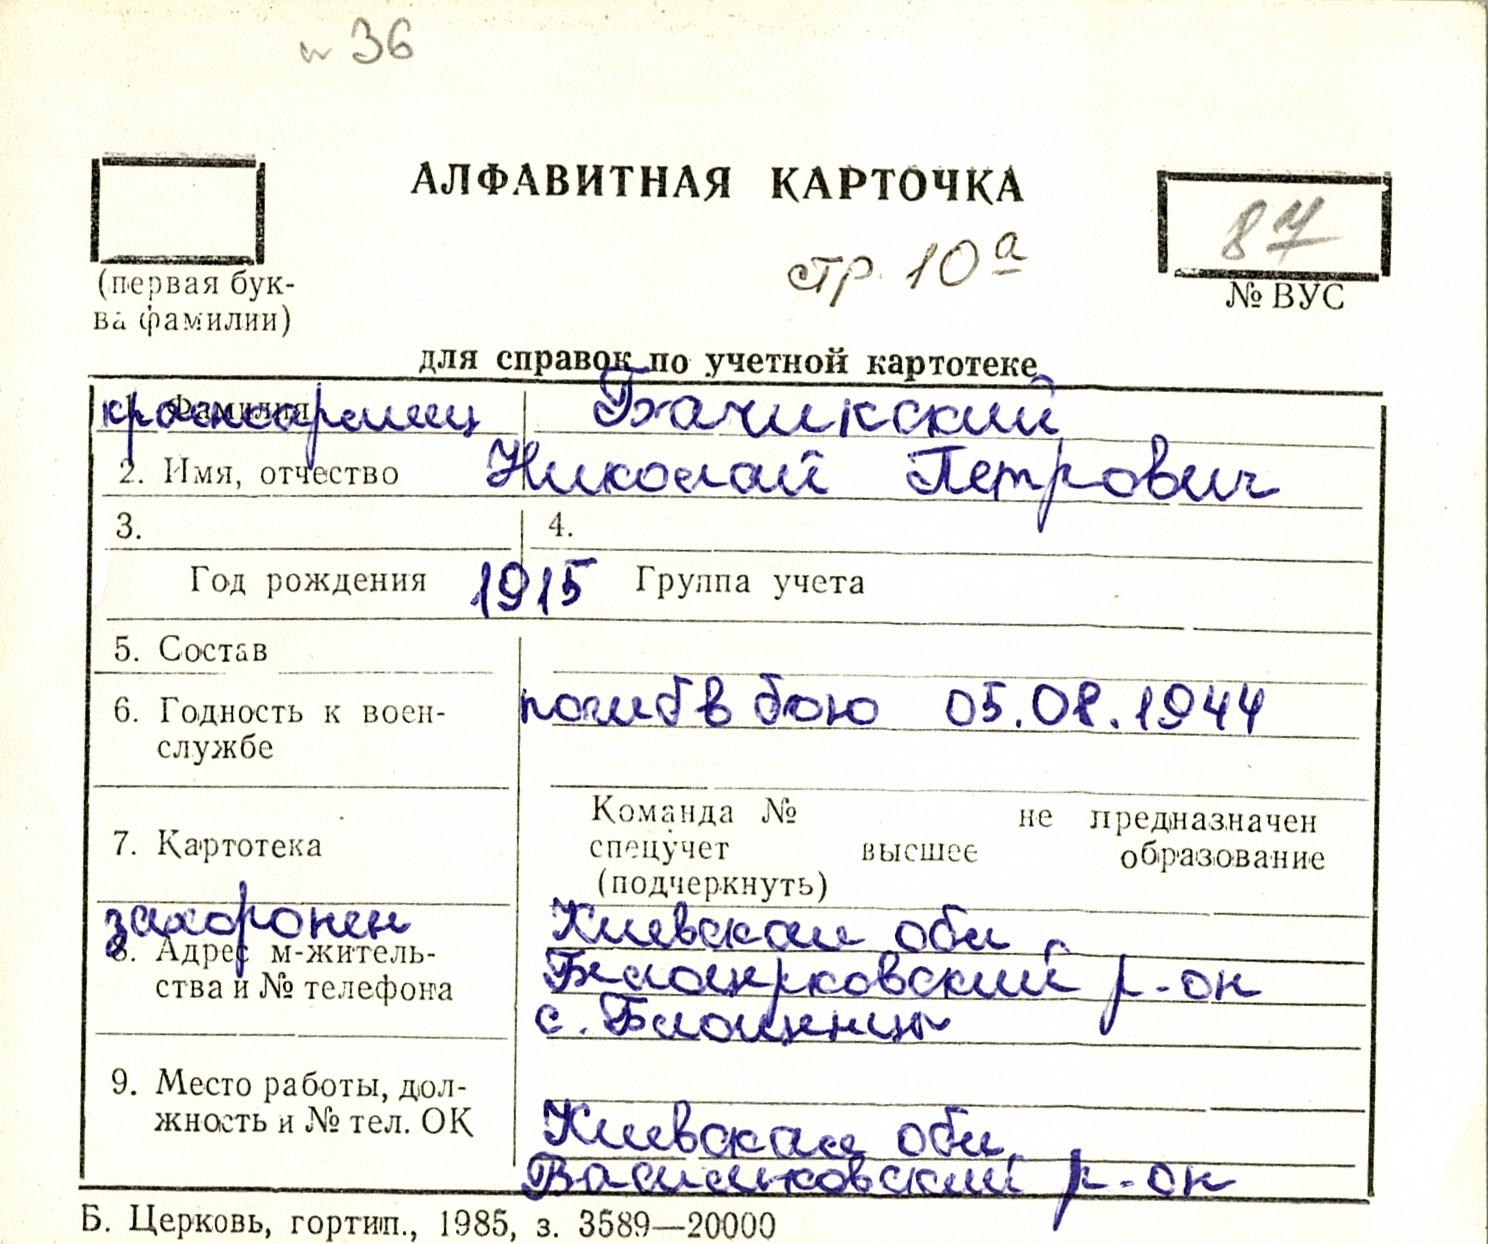 п 36
АЛФАВИТНАЯ КАРТОЧКА
87
стр. 10а
(первая бук-
ва фамилии)
№ ВУС
для справок по учетной картотеке
1. Фамилия
красноармеец Бачикский
2. Имя, отчество Николай Петрович
3. 4.
Год рождения 1915 Группа учета
5. Состав
6. Годность к воен-
службе
погиб в бою 05.08.1944
7. Картотека
Команда № не предназначен
спецучет высшее образование
(подчеркнуть)
захоронен Киевская обл,
8. Адрес м-житель-
ства и № телефона
Белоцерковский р-он
с. Блощенцы
9. Место работы, дол-
жность и № тел. ОК
Киевская обл,
Васильковский р-он
Б. Церковь, гортип., 1985, з. 3589—20000